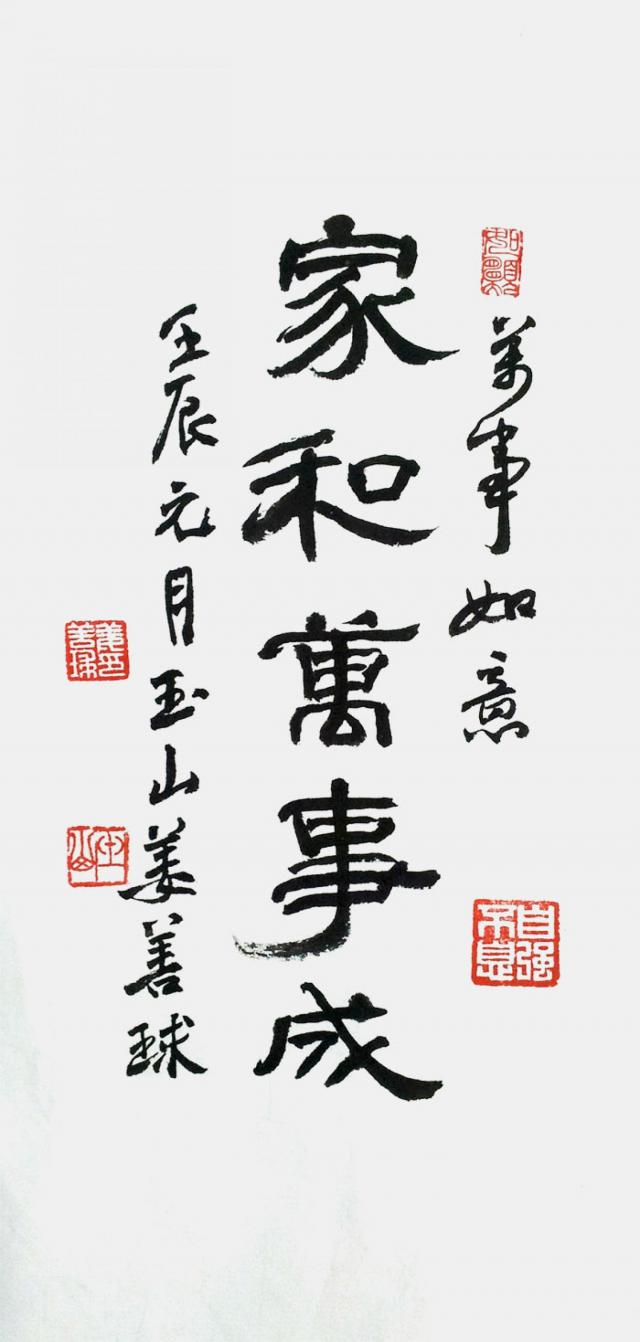 萬事如意
自强不息
家和萬事成
壬辰元月玉山姜善球
姜善球印
玉山